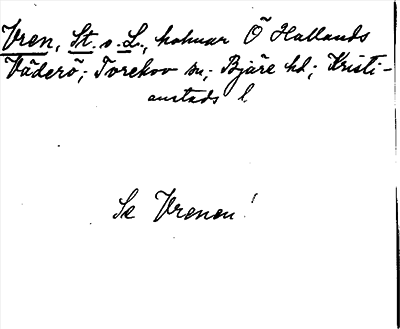 Vren, St. o. L., holmar Ö Hallands
Väderö; Torekov sn; Bjäre hd; Kristi-
anstads l
Se Vrenen!